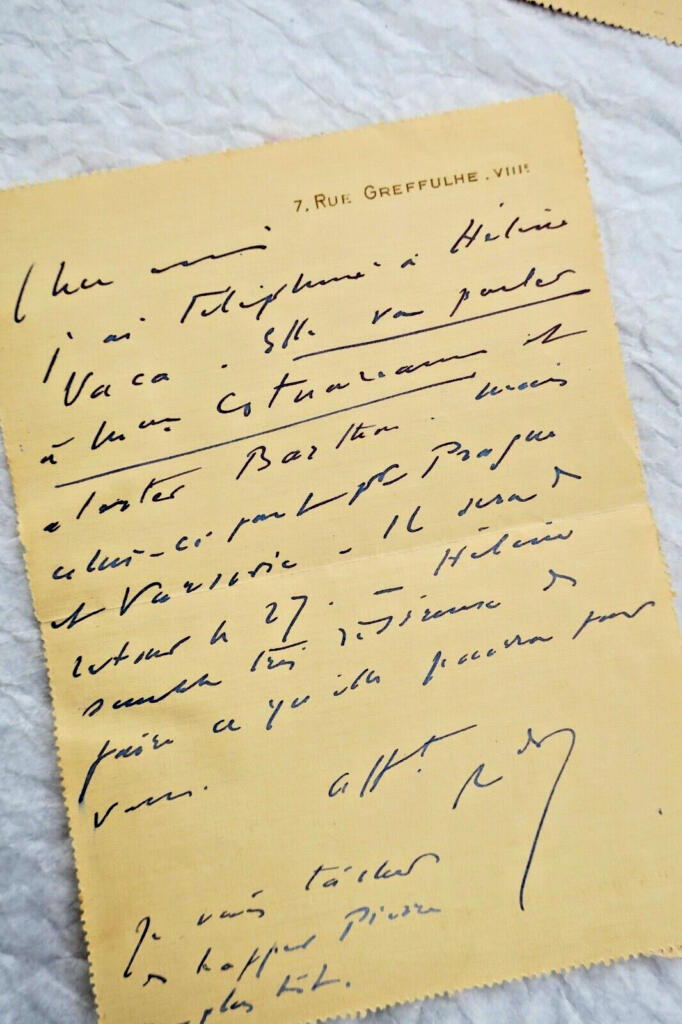 7, RUE GREFFULHE. VIIIE
Cher ami
j'ai téléphoné à Hélène
Vaca. Elle va parler
à et
alerter Barthou. mais
celui-ci part pr Prague
et Varsovie - Il sera de
retour le 27. - Hélène
semble très désireuse de
faire ce qu'elle pourra pour
vous. afft.
Je vais tâcher
de happer Pierre
plus tôt.